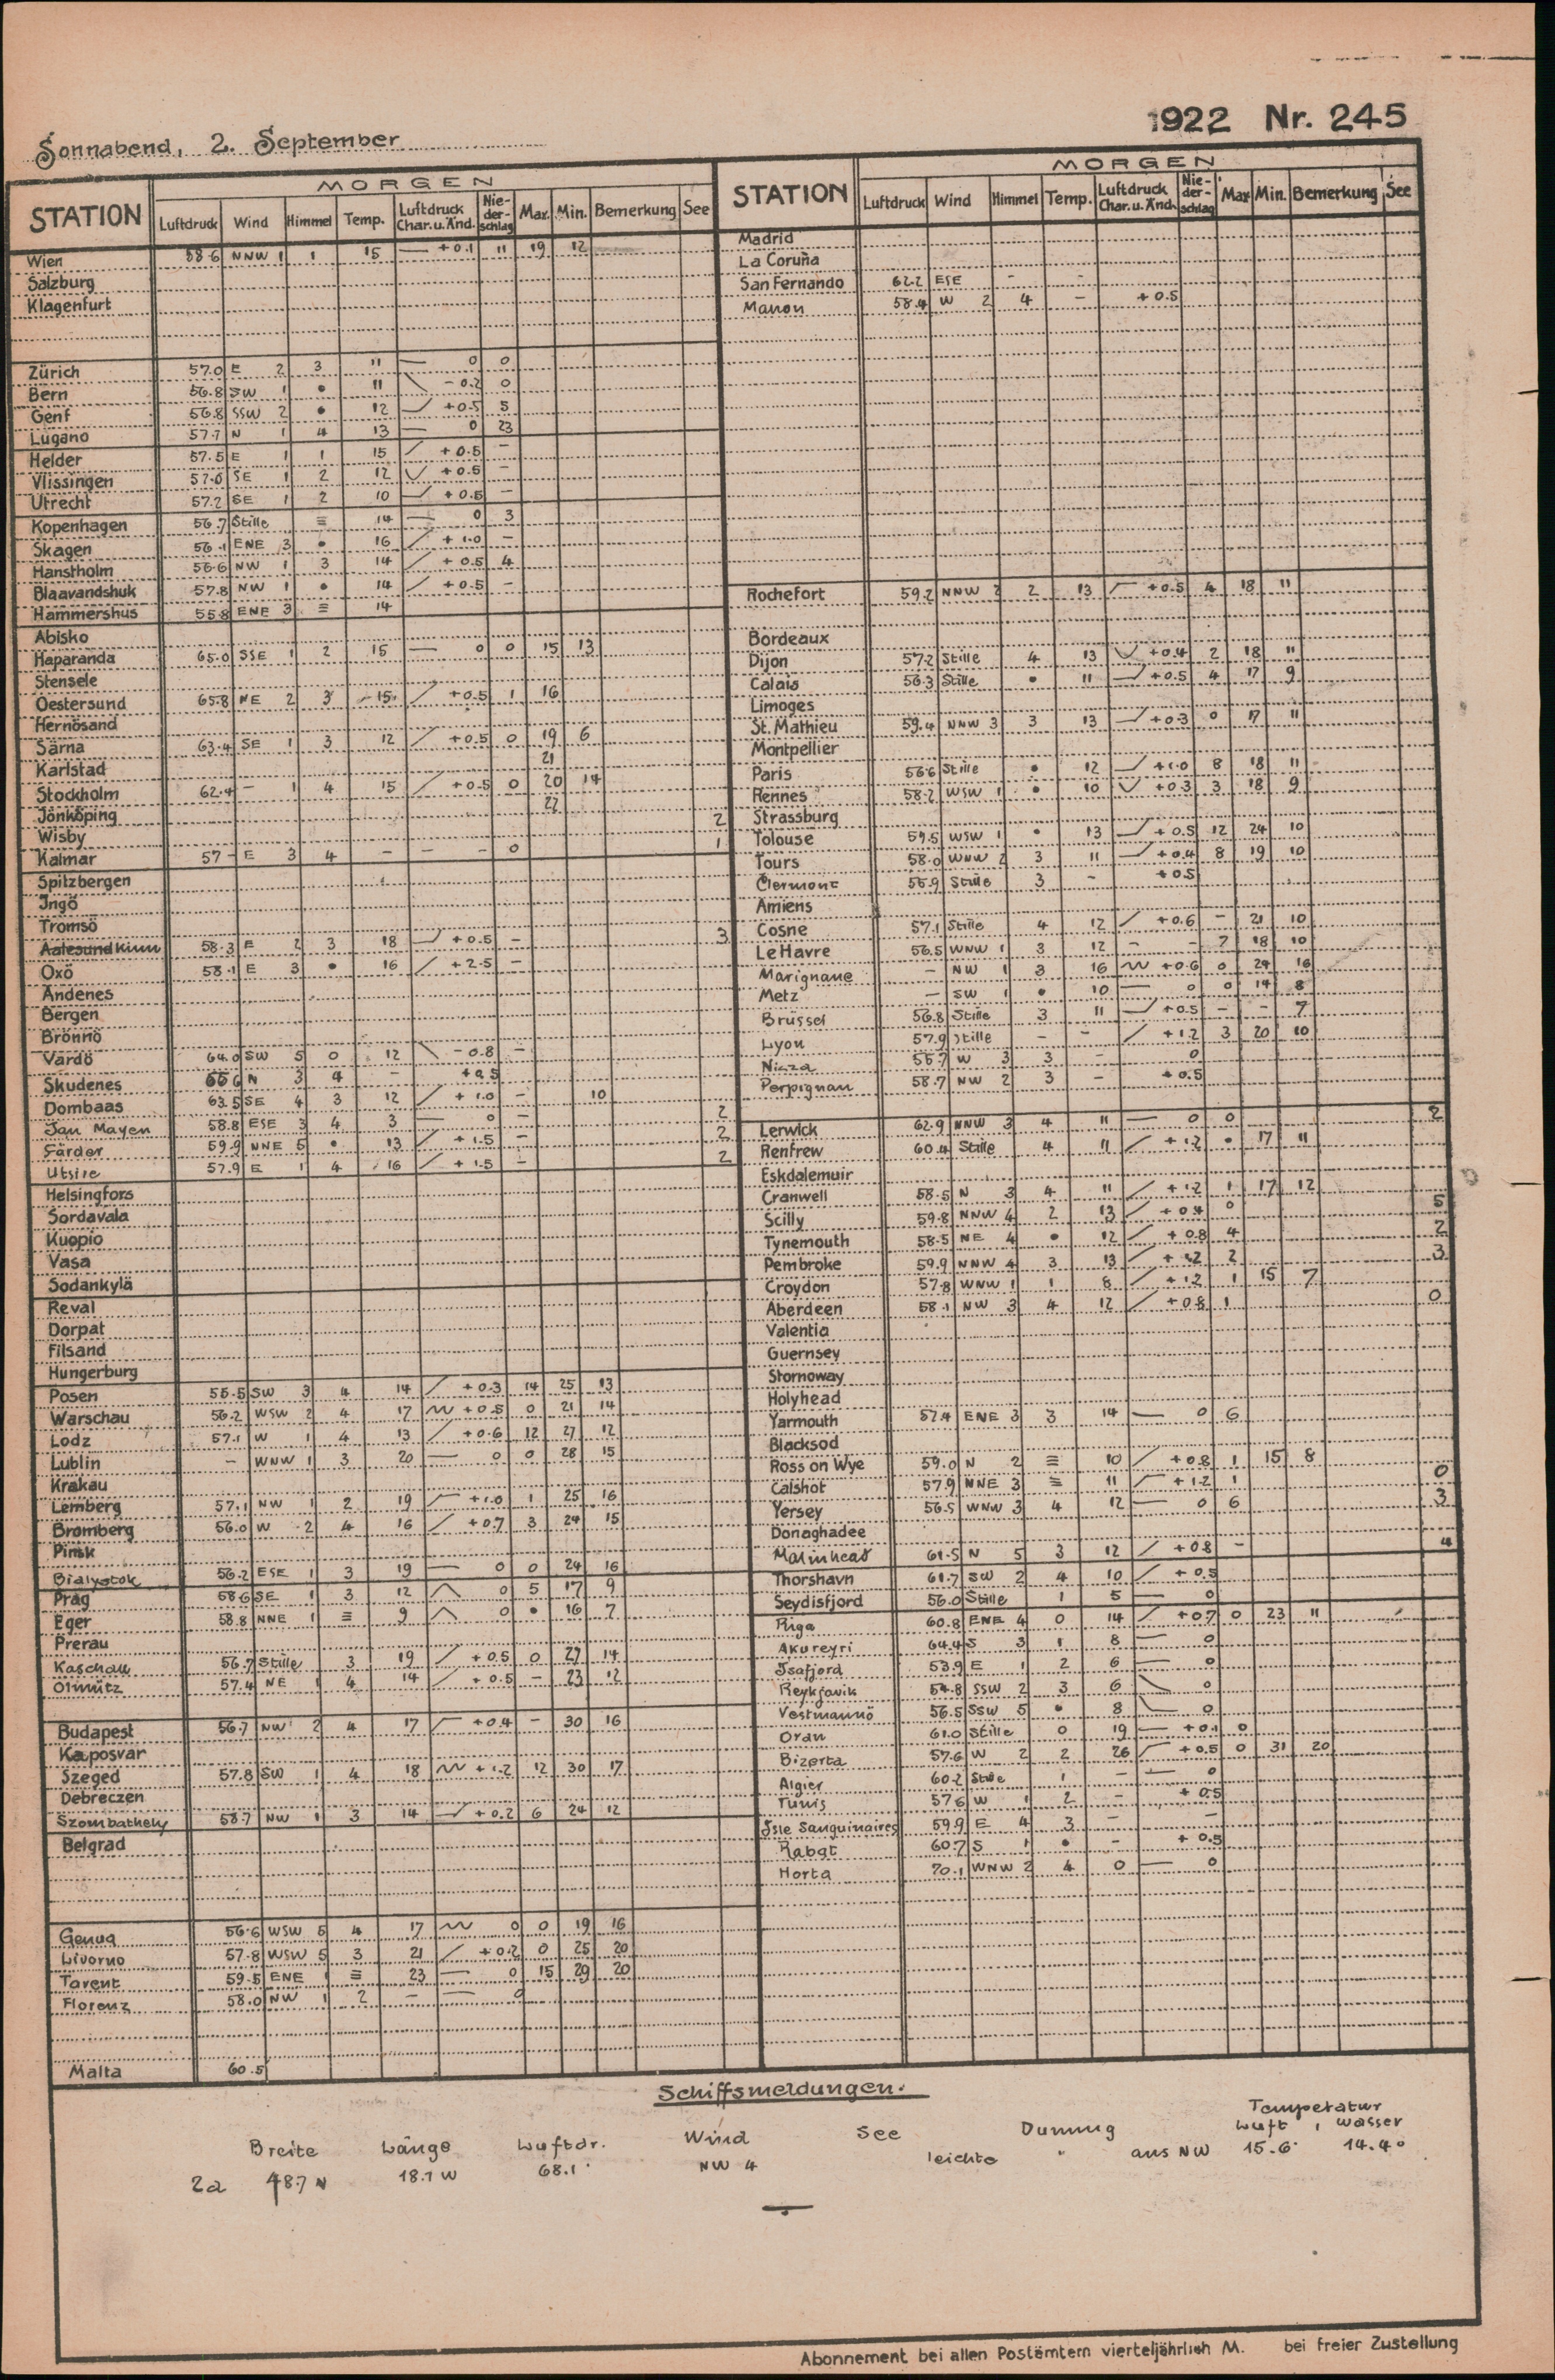 Sonnabend, 2. September
1922 Nr. 245
MORGEN
STATION Luftdruck Wind Himmel Temp. Luftdruck Char. u. Änd. Nie-der-schlag Max. Min. Bemerkung See
Wien 58.6 NNW 1 1 15 — +0.1 11 19 12
Salzburg
Klagenfurt
Zürich 57.0 E 2 3 11 — 0 0
Bern 56.8 SW 1 • 11 \ -0.2 0
Genf 56.8 SSW 2 • 12 +0.5 5
Lugano 57.7 N 1 4 13 — 0 23
Helder 57.5 E 1 1 15 / +0.5 —
Vlissingen 57.0 SE 1 2 12 +0.5 —
Utrecht 57.2 SE 1 2 10 +0.5 —
Kopenhagen 56.7 Stille ≡ 14 — 0 3
Skagen 56.1 ENE 3 • 16 / +1.0 —
Hanstholm 56.6 NW 1 3 14 / +0.5 4
Blaavandshuk 57.8 NW 1 • 14 / +0.5 —
Hammershus 55.8 ENE 3 ≡ 14
Abisko
Haparanda 65.0 SSE 1 2 15 — 0 0 15 13
Stensele
Oestersund 65.8 NE 2 3 15 / +0.5 1 16
Hernösand
Särna 63.4 SE 1 3 12 / +0.5 0 19 6
Karlstad 21
Stockholm 62.4 — 1 4 15 / +0.5 0 20 14
Jönköping 22
Wisby 2
Kalmar 57 — E 3 4 — — — 0 1
Spitzbergen
Ingö
Tromsö
Aalesund Kinn 58.3 E 2 3 18 +0.5 — 3
Oxö 58.1 E 3 • 16 / +2.5 —
Andenes
Bergen
Brönnö
Vardö 64.0 SW 5 0 12 \ -0.8 —
Skudenes N 3 4 — +0.5
Dombaas 63.5 SE 4 3 12 / +1.0 — 10
Jan Mayen 58.8 ESE 3 4 3 — 0 — 2
Färder 59.9 NNE 5 • 13 / +1.5 — 2
Utsire 57.9 E 1 4 16 / +1.5 — 2
Helsingfors
Sordavala
Kuopio
Vasa
Sodankylä
Reval
Dorpat
Filsand
Hungerburg
Posen 55.5 SW 3 4 14 / +0.3 14 25 13
Warschau 56.2 WSW 2 4 17 +0.5 0 21 14
Lodz 57.1 W 1 4 13 / +0.6 12 27 12
Lublin — WNW 1 3 20 — 0 0 28 15
Krakau
Lemberg 57.1 NW 1 2 19 +1.0 1 25 16
Bromberg 56.0 W 2 4 16 / +0.7 3 24 15
Pinsk
Bialystok 56.2 ESE 1 3 19 — 0 0 24 16
Prag 58.6 SE 1 3 12 0 5 17 9
Eger 58.8 NNE 1 ≡ 9 0 • 16 7
Prerau
Kaschau 56.7 Stille 3 19 / +0.5 0 27 14
Olmütz 57.4 NE 1 4 14 / +0.5 — 23 12
Budapest 56.7 NW 2 4 17 +0.4 — 30 16
Kaposvar
Szeged 57.8 SW 1 4 18 +1.2 12 30 17
Debreczen
Szombathely 58.7 NW 1 3 14 +0.2 6 24 12
Belgrad
Genua 56.6 WSW 5 4 17 0 0 19 16
Livorno 57.8 WSW 5 3 21 / +0.2 0 25 20
Tarent 59.5 ENE 1 ≡ 23 — 0 15 29 20
Florenz 58.0 NW 1 2 — — 0
Malta 60.5
MORGEN
STATION Luftdruck Wind Himmel Temp. Luftdruck Char. u. Änd. Nie-der-schlag Max Min. Bemerkung See
Madrid
La Coruña
San Fernando 62.2 ESE — —
Mahon 58.4 W 2 4 — +0.5
Rochefort 59.2 NNW 2 2 13 +0.5 4 18 11
Bordeaux
Dijon 57.2 Stille 4 13 +0.4 2 18 11
Calais 56.3 Stille • 11 +0.5 4 17 9
Limoges
St. Mathieu 59.4 NNW 3 3 13 +0.3 0 17 11
Montpellier
Paris 56.6 Stille • 12 +1.0 8 18 11
Rennes 58.2 WSW 1 • 10 +0.3 3 18 9
Strassburg
Tolouse 59.5 WSW 1 • 13 +0.5 12 24 10
Tours 58.0 WNW 2 3 11 +0.4 8 19 10
Clermont 56.9 Stille 3 — +0.5
Amiens
Cosne 57.1 Stille 4 12 / +0.6 — 21 10
Le Havre 56.5 WNW 1 3 12 — — 7 18 10
Marignane — NW 1 3 16 +0.6 0 24 16
Metz — SW 1 • 10 — 0 0 14 8
Brüssel 56.8 Stille 3 11 +0.5 — — 7
Lyon 57.9 Stille — — / +1.2 3 20 10
Nizza 55.7 W 3 3 — 0
Perpignan 58.7 NW 2 3 — +0.5
Lerwick 62.9 NNW 3 4 11 — 0 0 2
Renfrew 60.4 Stille 4 11 / +1.2 • 17 11
Eskdalemuir
Cranwell 58.5 N 3 4 11 / +1.2 1 17 12
Scilly 59.8 NNW 4 2 13 / +0.4 0 5
Tynemouth 58.5 NE 4 • 12 / +0.8 4 2
Pembroke 59.9 NNW 4 3 13 / +1.2 2 3
Croydon 57.8 WNW 1 1 8 / +1.2 1 15 7
Aberdeen 58.1 NW 3 4 12 / +0.8 1 0
Valentia
Guernsey
Stornoway
Holyhead
Yarmouth 57.4 ENE 3 3 14 — 0 6
Blacksod
Ross on Wye 59.0 N 2 ≡ 10 / +0.8 1 15 8
Calshot 57.9 NNE 3 ≡ 11 +1.2 1 0
Yersey 56.5 WNW 3 4 12 — 0 6 3
Donaghadee
Malinhead 61.5 N 5 3 12 / +0.8 — 4
Thorshavn 61.7 SW 2 4 10 / +0.5
Seydisfjord 56.0 Stille 1 5 — 0
Riga 60.8 ENE 4 0 14 / +0.7 0 23 11
Akureyri 64.4 S 3 1 8 — 0
Isafjord 53.9 E 1 2 6 — 0
Reykjavik 54.8 SSW 2 3 6 0
Vestmannö 56.5 SSW 5 • 8 0
Oran 61.0 Stille 0 19 — +0.1 0
Bizerta 57.6 W 2 2 26 +0.5 0 31 20
Algier 60.2 Stille 1 — — 0
Tunis 57.6 W 1 2 — +0.5
Isle Sanguinaires 59.9 E 4 3 — —
Rabat 60.7 S 1 • — +0.5
Horta 70.1 WNW 2 4 0 — 0
Schiffsmeldungen.
Breite Länge Luftdr. Wind See Dünung Temperatur Luft, Wasser
2a 48.7 N 18.1 W 68.1 NW 4 leichte " aus NW 15.6° 14.4°
Abonnement bei allen Postämtern vierteljährlich M. bei freier Zustellung